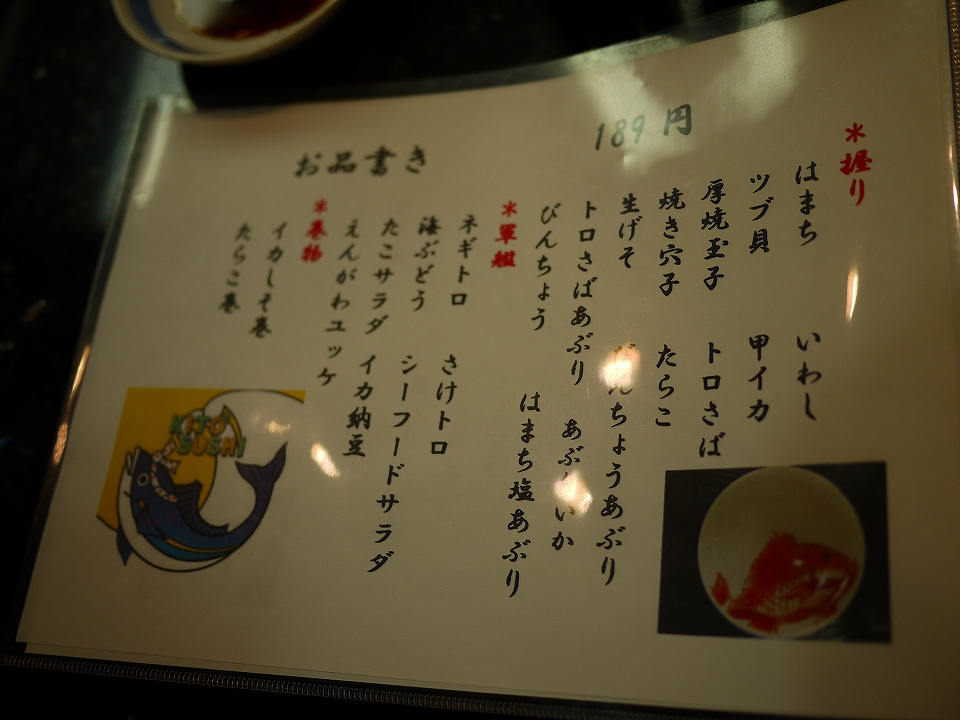 お品書き
189円
＊握り
はまち　いわし
ツブ貝　甲イカ
厚焼玉子　トロさば
焼き穴子　たらこ
生げそ　びんちょうあぶり
トロさばあぶり　あぶりいか
びんちょう　はまち塩あぶり
＊軍艦
ネギトロ　さけトロ
海ぶどう　シーフードサラダ
たこサラダ　イカ納豆
えんがわユッケ
＊巻物
イカしそ巻
たらこ巻
KITO
SUSHI